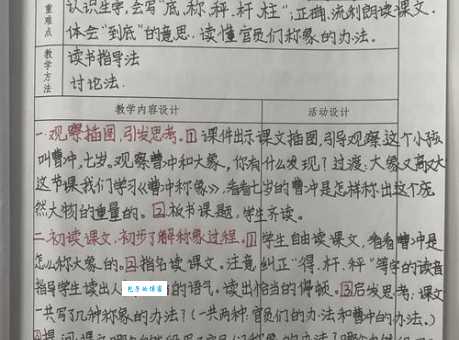 重难点
认识生字,会写"底、称、秤、杆、柱";正确、流利朗读课文。
体会"到底"的意思,读懂官员们称象的办法。
教学方法
读书指导法
讨论法
教学内容设计
活动设计
一.观察插图,引发思考。1课件出示课文插图,引导观察这个小孩
叫曹冲,七岁。观察曹冲和大象,你有什么发现?过渡:大象又高又大
这节课我们学习《曹冲称象》,看看七岁的曹冲是怎样称出这个庞
然大物的重量的。2板书课题,学生齐读。
二.初读课文,初步了解称象过程。1学生自由读课文,看看曹冲是
怎么称大象的。2指名读课文。注意纠正"得、杆、秤"等字的读音
指导学生读出人 的语气。读出恰当的停顿。3启发思考:课文
包子的情面
一共写了几种称象的办法?(一共两种:官员们的办法和曹冲的办法。)